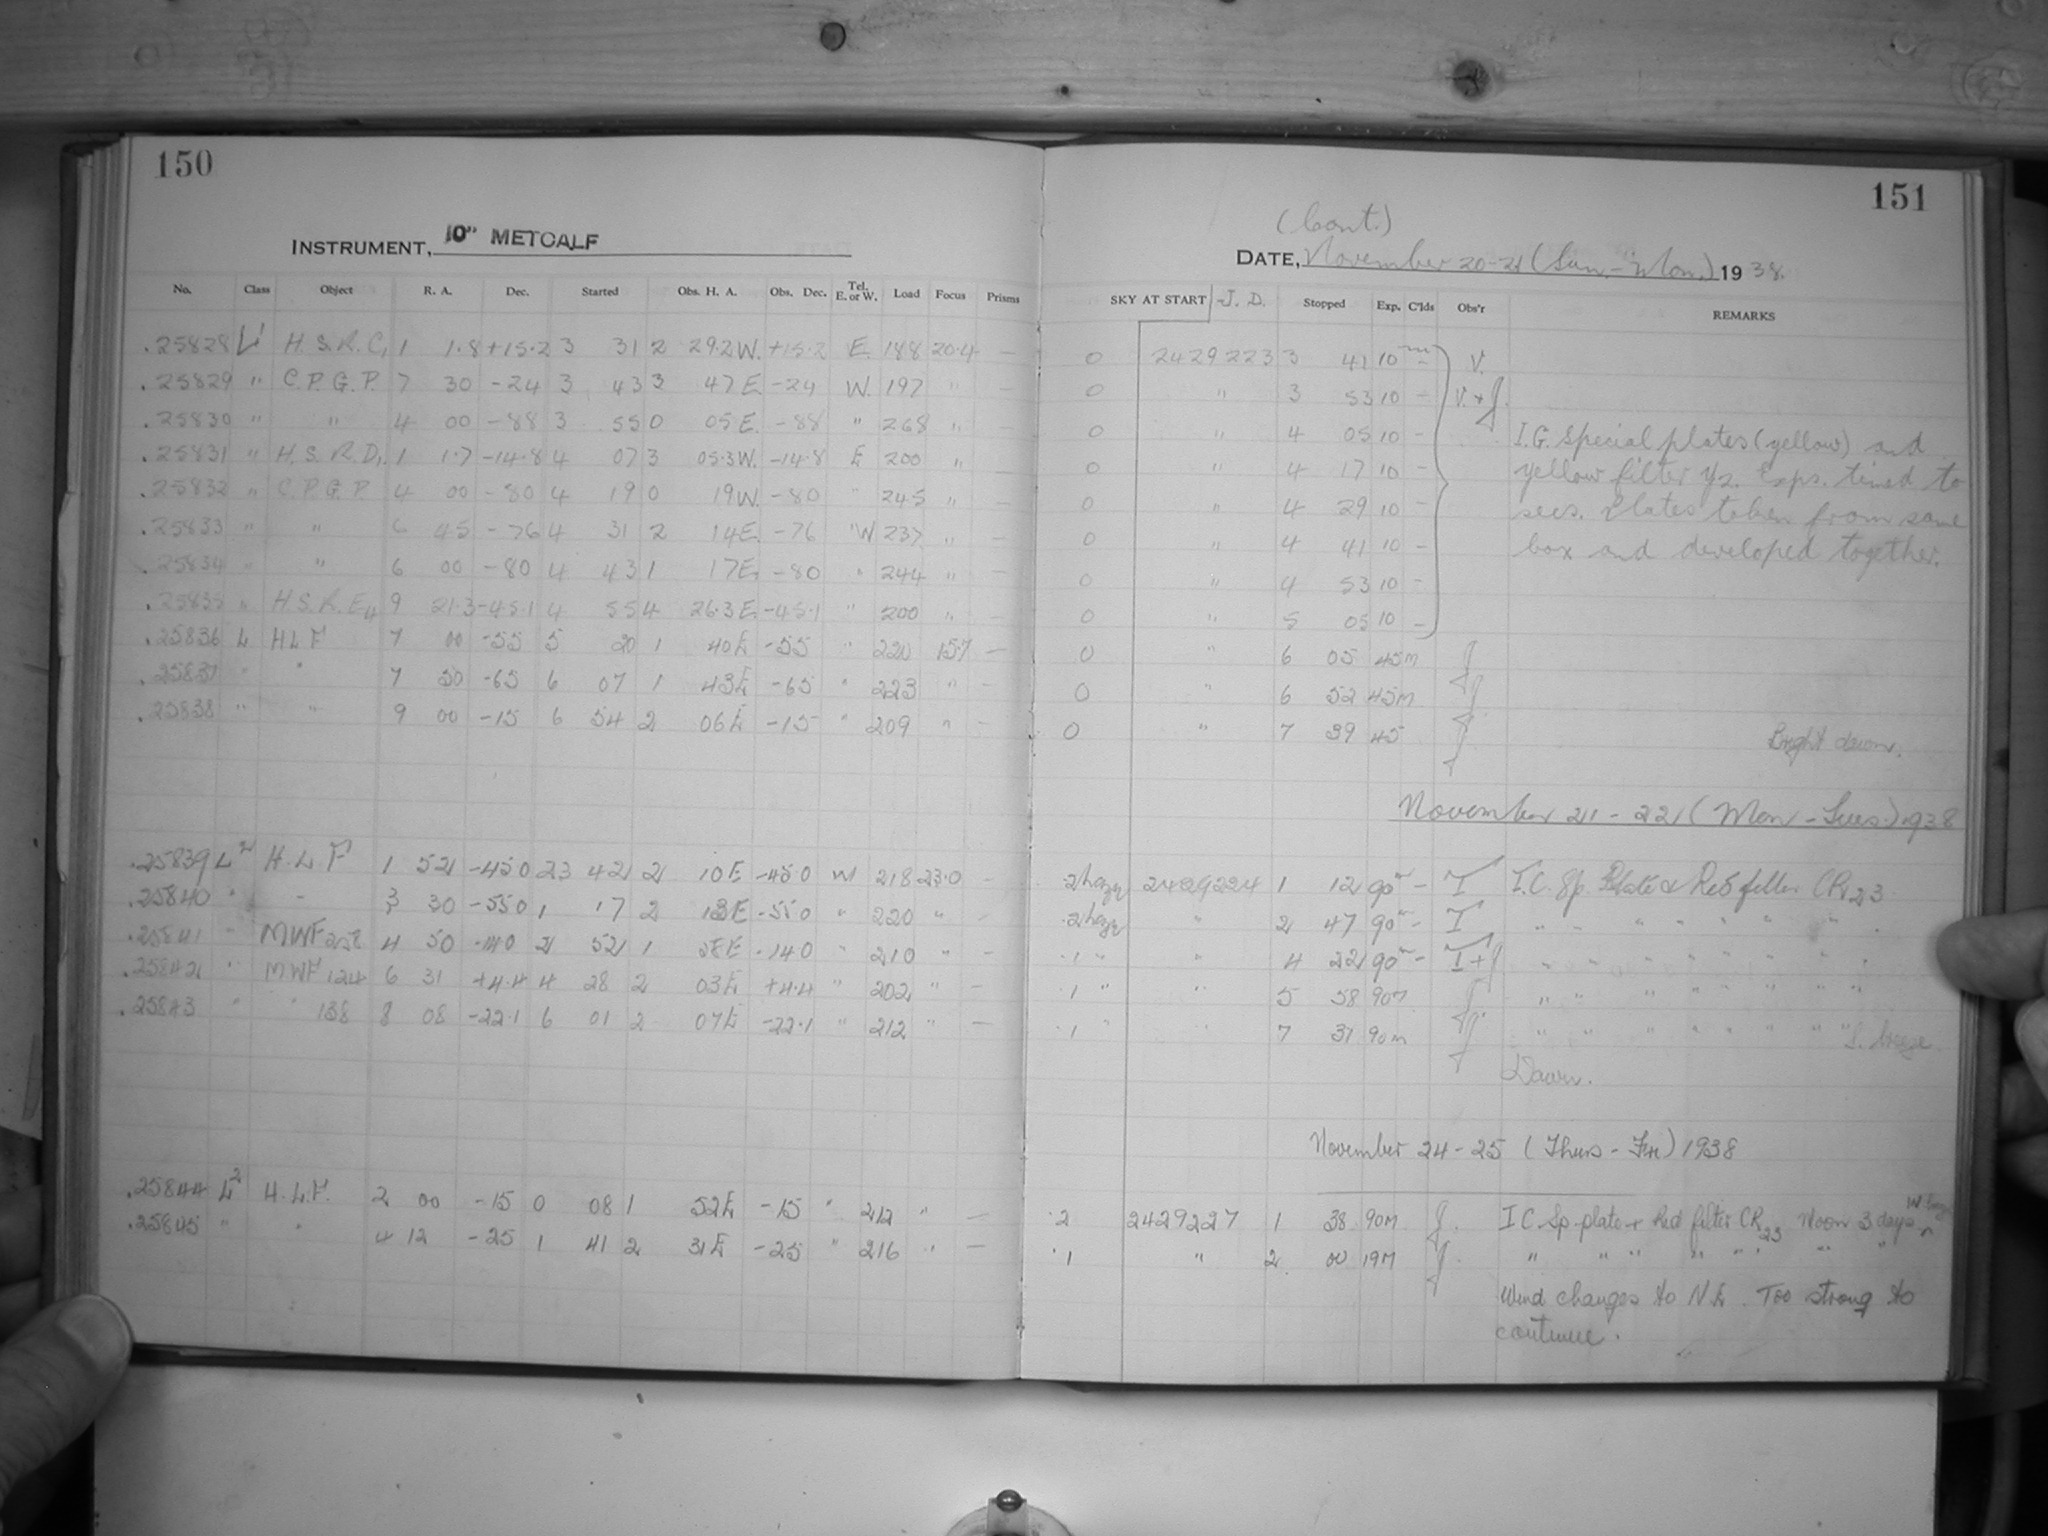 150
INSTRUMENT, 10" METCALF
No. Class Object R. A. Dec. Started Obs. H. A. Obs. Dec. Tel. E. or W. Load Focus Prisms
.25828 H.S.R.C, 1 1.8 +15.2 3 31 2 29.2 W. +15.2 E. 188 20.4 —
.25829 " C.P.G.P. 7 30 -24 3 43 3 47 E -24 W. 197 " —
.25830 " " 4 00 -88 3 55 0 05 E. -88 " 268 " —
.25831 " H.S.R.D, 1 1.7 -14.8 4 07 3 05.3 W. -14.8 E 200 " —
.25832 " C.P.G.P. 4 00 -80 4 19 0 19 W. -80 " 245 " —
.25833 " " 6 45 -76 4 31 2 14 E. -76 "W 237 " —
.25834 " " 6 00 -80 4 43 1 17 E. -80 " 244 " —
.25835 " H.S.R.E4 9 21.3 -45.1 4 55 4 26.3 E. -45.1 " 200 " —
.25836 L HLF 7 00 -55 5 20 1 40 E -55 " 220 15.7 —
.25837 " " 7 50 -65 6 07 1 43 E -65 " 223 " —
.25838 " " 9 00 -15 6 54 2 06 E -15 " 209 " —
.25839 L2 H.L.F 1 52 -45 0 23 42 2 10 E -45 0 W 218 23.0 —
.25840 " - 3 30 -55 0 1 17 2 13 E -55 0 " 220 " —
.25841 " MWF 258 4 50 -14 0 2 52 1 28 E -14 0 " 210 " —
.25842 " MWF 124 6 31 +4.4 4 28 2 03 E +4.4 " 202 " —
.25843 " " 138 8 08 -22.1 6 01 2 07 E -22.1 " 212 " —
.25844 L2 H.L.F. 2 00 -15 0 08 1 52 E -15 " 212 " —
.25845 " " 4 12 -25 1 41 2 31 E -25 " 216 " —
151
(Cont.)
DATE, November 20-21 (Sun.-Mon.) 1938.
SKY AT START J. D. Stopped Exp. C'lds Obs'r REMARKS
0 2429223 3 41 10m — V.
0 " 3 53 10 — V. + J.
0 " 4 05 10 — I.G. Special plates (yellow) and
0 " 4 17 10 — yellow filter Y2. Exps. timed to
0 " 4 29 10 — secs. Plates taken from same
0 " 4 41 10 — box and developed together.
0 " 4 53 10 —
0 " 5 05 10 —
0 " 6 05 45m J
0 " 6 52 45m J
0 " 7 39 45 J Bright dawn.
November 21-22 (Mon-Tues.) 1938
.2 hazy 2429224 1 12 90m — T I.C. Sp. Plate & Red filter CR23
.2 hazy " 2 47 90m — T " " " " " " "
.1 " " 4 22 90m — T+J " " " " " " "
.1 " " 5 58 90m J " " " " " " "
.1 " " 7 31 90m J " " " " " " " S. breeze
Dawn.
November 24-25 (Thurs-Fri) 1938
.2 2429227 1 38 90m J. I C Sp. plate + Red filter CR23 Moon 3 days
.1 " 2 00 19m J. " " " " " " " "
Wind changes to N.E. Too strong to
continue.